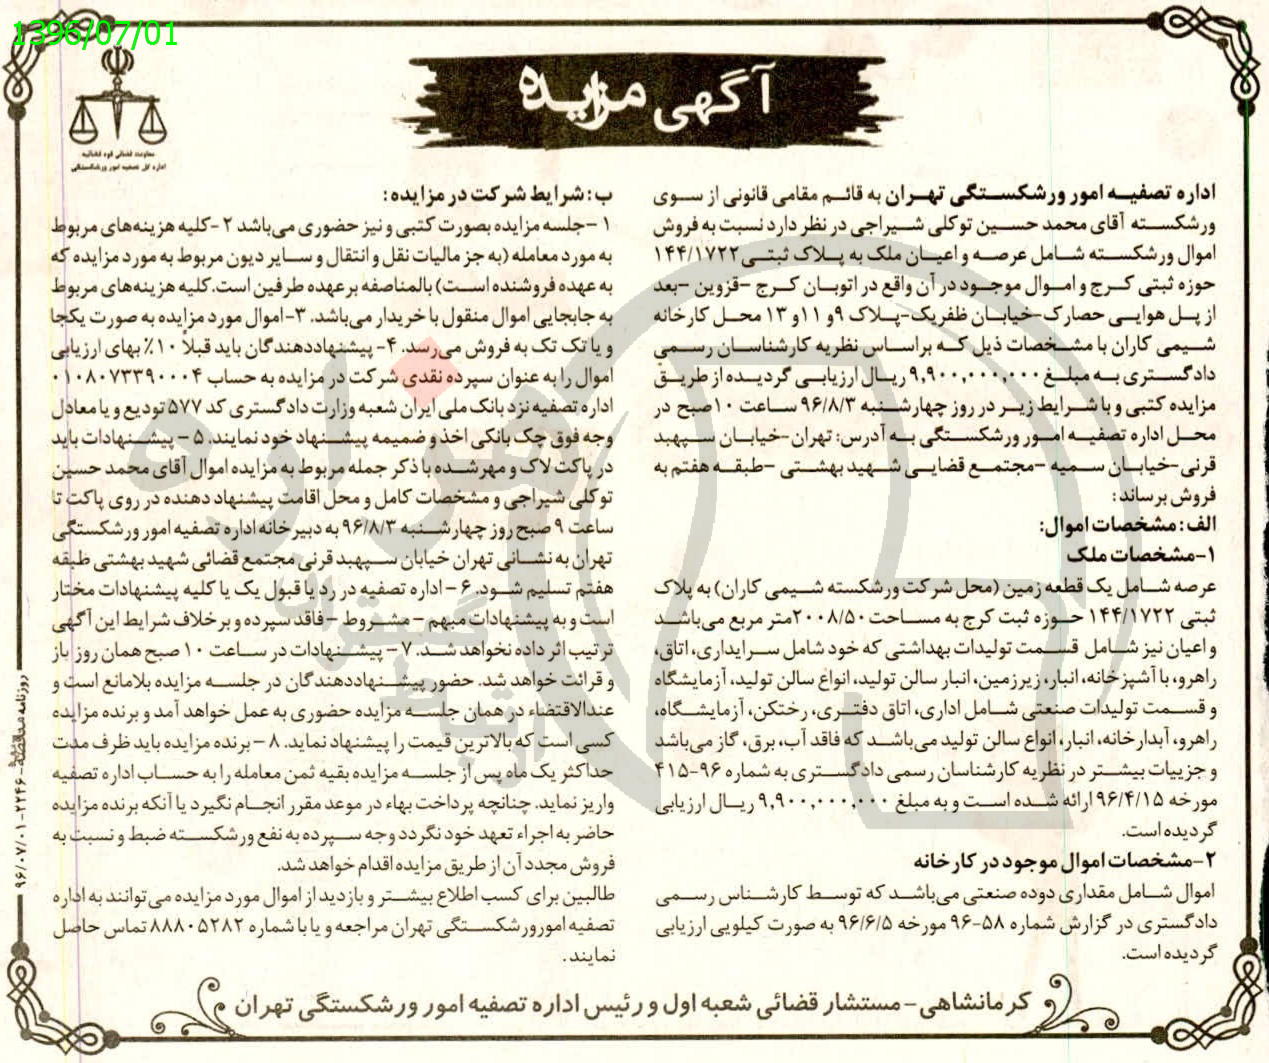 1396/07/01
معاونت قضائی قوه قضائیه
اداره کل تصفیه امور ورشکستگی
آگهی مزایده
اداره تصفیه امور ورشکستگی تهران به قائم مقامی قانونی از سوی
ورشکسته آقای محمد حسین توکلی شیراجی در نظر دارد نسبت به فروش
اموال ورشکسته شامل عرصه و اعیان ملک به پلاک ثبتی ۱۴۴/۱۷۲۲
حوزه ثبتی کرج و اموال موجود در آن واقع در اتوبان کرج -قزوین -بعد
از پل هوایی حصارک-خیابان ظفریک-پلاک ۹و ۱۱و ۱۳ محل کارخانه
شیمی کاران با مشخصات ذیل که براساس نظریه کارشناسان رسمی
دادگستری به مبلغ ۹,۹۰۰,۰۰۰,۰۰۰ ریال ارزیابی گردیده از طریق
مزایده کتبی و با شرایط زیر در روز چهارشنبه ۹۶/۸/۳ ساعت ۱۰صبح در
محل اداره تصفیه امور ورشکستگی به آدرس: تهران-خیابان سپهبد
قرنی-خیابان سمیه -مجتمع قضایی شهید بهشتی -طبقه هفتم به
فروش برساند:
الف: مشخصات اموال:
۱-مشخصات ملک
عرصه شامل یک قطعه زمین (محل شرکت ورشکسته شیمی کاران) به پلاک
ثبتی ۱۴۴/۱۷۲۲ حوزه ثبت کرج به مساحت ۲۰۰۸/۵۰متر مربع می‌باشد
و اعیان نیز شامل قسمت تولیدات بهداشتی که خود شامل سرایداری، اتاق،
راهرو، با آشپزخانه، انبار، زیرزمین، انبار سالن تولید، انواع سالن تولید، آزمایشگاه
و قسمت تولیدات صنعتی شامل اداری، اتاق دفتری، رختکن، آزمایشگاه،
راهرو، آبدارخانه، انبار، انواع سالن تولید می‌باشد که فاقد آب، برق، گاز می‌باشد
و جزییات بیشتر در نظریه کارشناسان رسمی دادگستری به شماره ۹۶-۴۱۵
مورخه ۹۶/۴/۱۵ ارائه شده است و به مبلغ ۹,۹۰۰,۰۰۰,۰۰۰ ریال ارزیابی
گردیده است.
۲-مشخصات اموال موجود در کارخانه
اموال شامل مقداری دوده صنعتی می‌باشد که توسط کارشناس رسمی
دادگستری در گزارش شماره ۵۸-۹۶ مورخه ۹۶/۶/۵ به صورت کیلویی ارزیابی
گردیده است.
ب: شرایط شرکت در مزایده:
۱-جلسه مزایده بصورت کتبی و نیز حضوری می‌باشد ۲-کلیه هزینه‌های مربوط
به مورد معامله (به جز مالیات نقل و انتقال و سایر دیون مربوط به مورد مزایده که
به عهده فروشنده است) بالمناصفه برعهده طرفین است.کلیه هزینه‌های مربوط
به جابجایی اموال منقول با خریدار می‌باشد. ۳-اموال مورد مزایده به صورت یکجا
و یا تک تک به فروش می‌رسد. ۴- پیشنهاددهندگان باید قبلاً ۱۰٪ بهای ارزیابی
اموال را به عنوان سپرده نقدی شرکت در مزایده به حساب ۰۱۰۸۰۷۳۳۹۰۰۰۴
اداره تصفیه نزد بانک ملی ایران شعبه وزارت دادگستری کد ۵۷۷ تودیع و یا معادل
وجه فوق چک بانکی اخذ و ضمیمه پیشنهاد خود نمایند. ۵ - پیشنهادات باید
در پاکت لاک و مهرشده با ذکر جمله مربوط به مزایده اموال آقای محمد حسین
توکلی شیراجی و مشخصات کامل و محل اقامت پیشنهاد دهنده در روی پاکت تا
ساعت ۹ صبح روز چهارشنبه ۹۶/۸/۳ به دبیرخانه اداره تصفیه امور ورشکستگی
تهران به نشانی تهران خیابان سپهبد قرنی مجتمع قضائی شهید بهشتی طبقه
هفتم تسلیم شود. ۶ - اداره تصفیه در رد یا قبول یک یا کلیه پیشنهادات مختار
است و به پیشنهادات مبهم - مشروط - فاقد سپرده و برخلاف شرایط این آگهی
ترتیب اثر داده نخواهد شد. ۷ - پیشنهادات در ساعت ۱۰ صبح همان روز باز
و قرائت خواهد شد. حضور پیشنهاددهندگان در جلسه مزایده بلامانع است و
عندالاقتضاء در همان جلسه مزایده حضوری به عمل خواهد آمد و برنده مزایده
کسی است که بالاترین قیمت را پیشنهاد نماید. ۸ - برنده مزایده باید ظرف مدت
حداکثر یک ماه پس از جلسه مزایده بقیه ثمن معامله را به حساب اداره تصفیه
واریز نماید. چنانچه پرداخت بهاء در موعد مقرر انجام نگیرد یا آنکه برنده مزایده
حاضر به اجراء تعهد خود نگردد وجه سپرده به نفع ورشکسته ضبط و نسبت به
فروش مجدد آن از طریق مزایده اقدام خواهد شد.
طالبین برای کسب اطلاع بیشتر و بازدید از اموال مورد مزایده می توانند به اداره
تصفیه امورورشکستگی تهران مراجعه و یا با شماره ۸۸۸۰۵۲۸۲ تماس حاصل
نمایند.
کرمانشاهی - مستشار قضائی شعبه اول و رئیس اداره تصفیه امور ورشکستگی تهران
روزنامه مناقصه - ۲۲۴۶ - ۹۶/۰۷/۰۱